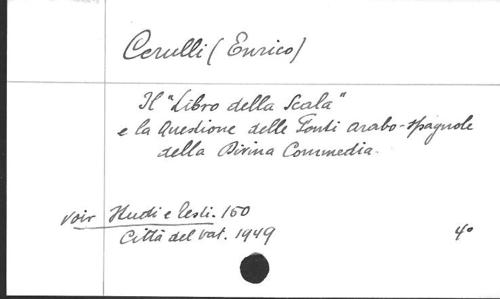 Cerulli (Enrico)
Il "Libro della Scala"
e la Questione delle Fonti arabo-spagnole
della Divina Commedia.
voir Studi e testi. 150
Città del Vat. 1949
4°